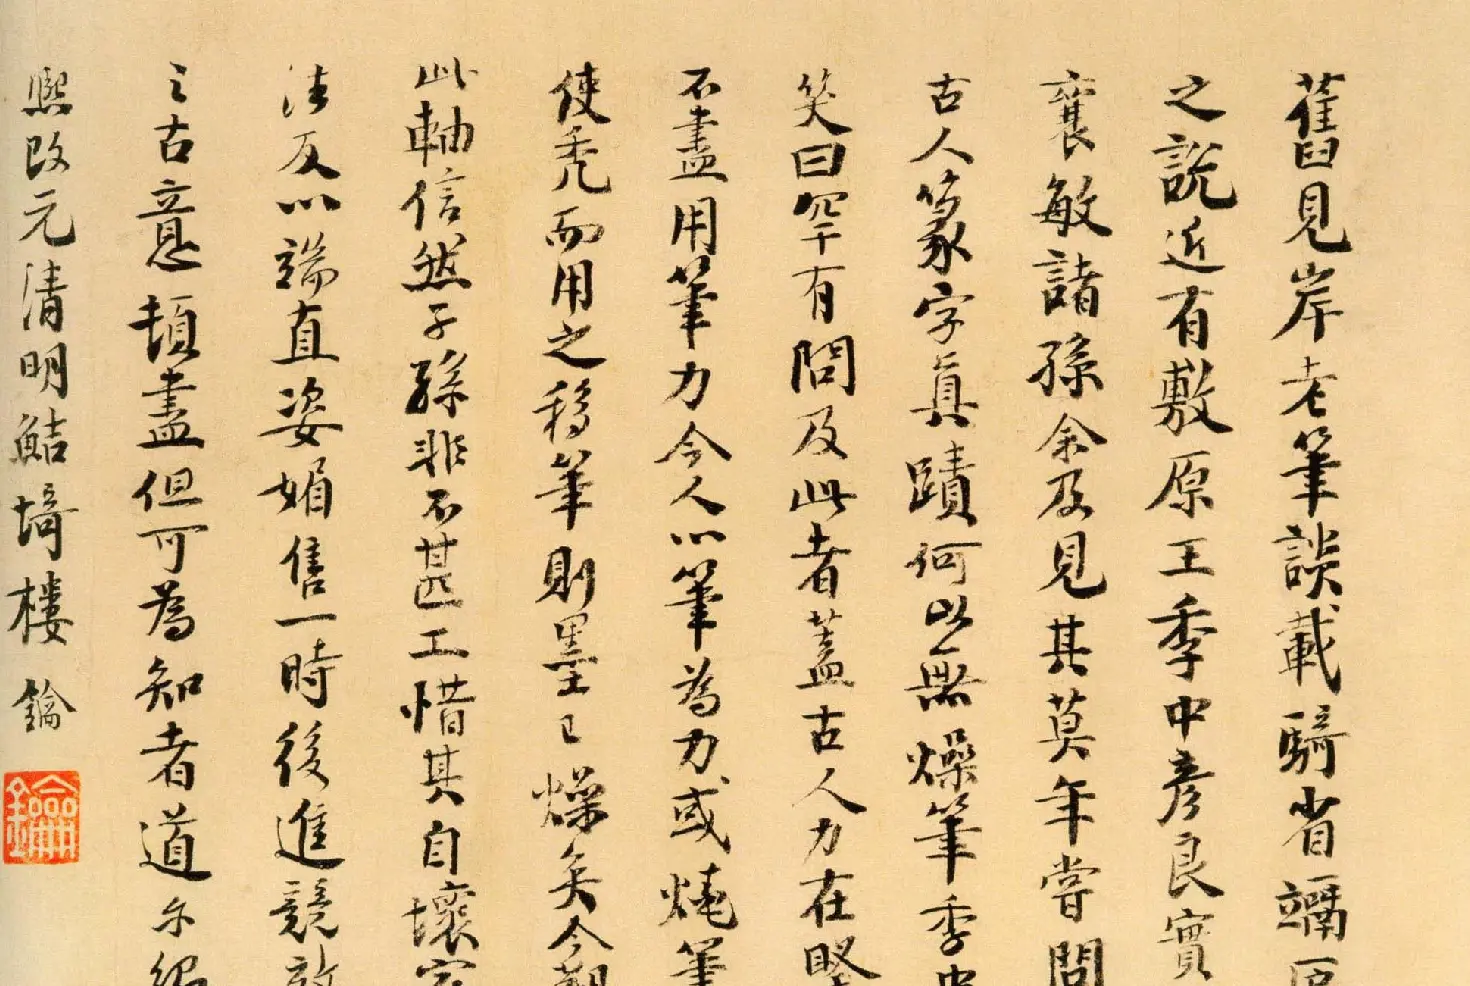 舊見岸老筆談載騎省匾
之說近有敷原王季中彥良實
襄敏諸孫余及見其莫年嘗問
古人篆字真蹟何以無燥筆季中
笑曰罕有問及此者蓋古人力在堅
不盡用筆力今人以筆為力或燒筆
使禿而用之移筆則墨已燥矣今觀
此軸信然子孫非不甚工惜其自壞家
法反以端直姿媚售一時後進競效
之古意頓盡但可為知者道尔紹
熙改元清明鮚埼樓鑰
鑰